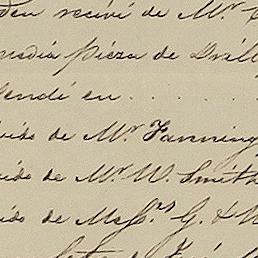 den recivi de Mr.
media pieza de Drill
vendi en . . . . . .
bido de Mr. Fanning
bido de Mr. W. Smith
bido de Messrs. G. &